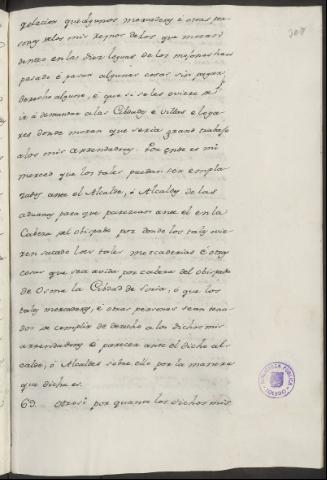 relacion que algunos mercaderes é otras per
sonas de los mis reynos de los que moran
dentro en las diez leguas de los mojones han
pasado é pasan algunas cosas sin pagar
derecho alguno, é que si se les oviere de
ir á demandar a las Cibdades é villas e luga
res donde moran que seria grand trabajo
a los mis arrendadores. Por ende es mi
merced que los tales puedan ser empla
zados ante el Alcalde, ó Alcaldes de las
aduanas para que parezcan ante el en la
Cabeza del obispado por donde los tales ovie
ren sacado las tales mercaderias é otras
cosas que sea avida por cabeza del obispado
de Osma la Cibdad de Soria, ó que los
tales mercaderes, é otras personas sean tenu
dos de complir de derecho a los dichos mis
arrendadores é parezca ante el dicho al
calde, ó Alcaldes sobre ello por la manera
que dicha es.
63. Otrosi por quanto los dichos mis
BIBLIOTECA PUBLICA
TOLEDO